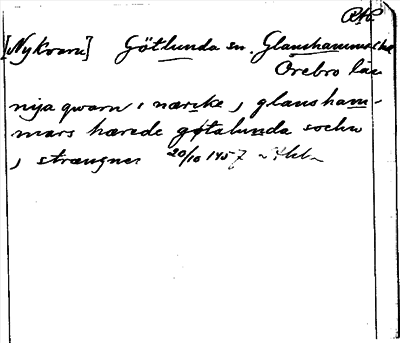 RAP.
[Nykvarn] Götlunda sn. Glanshammars hd
Örebro län
nija qwarn i nærike, glansham-
mars hærede gøtalunda sochn
, strængnes 20/10 1457